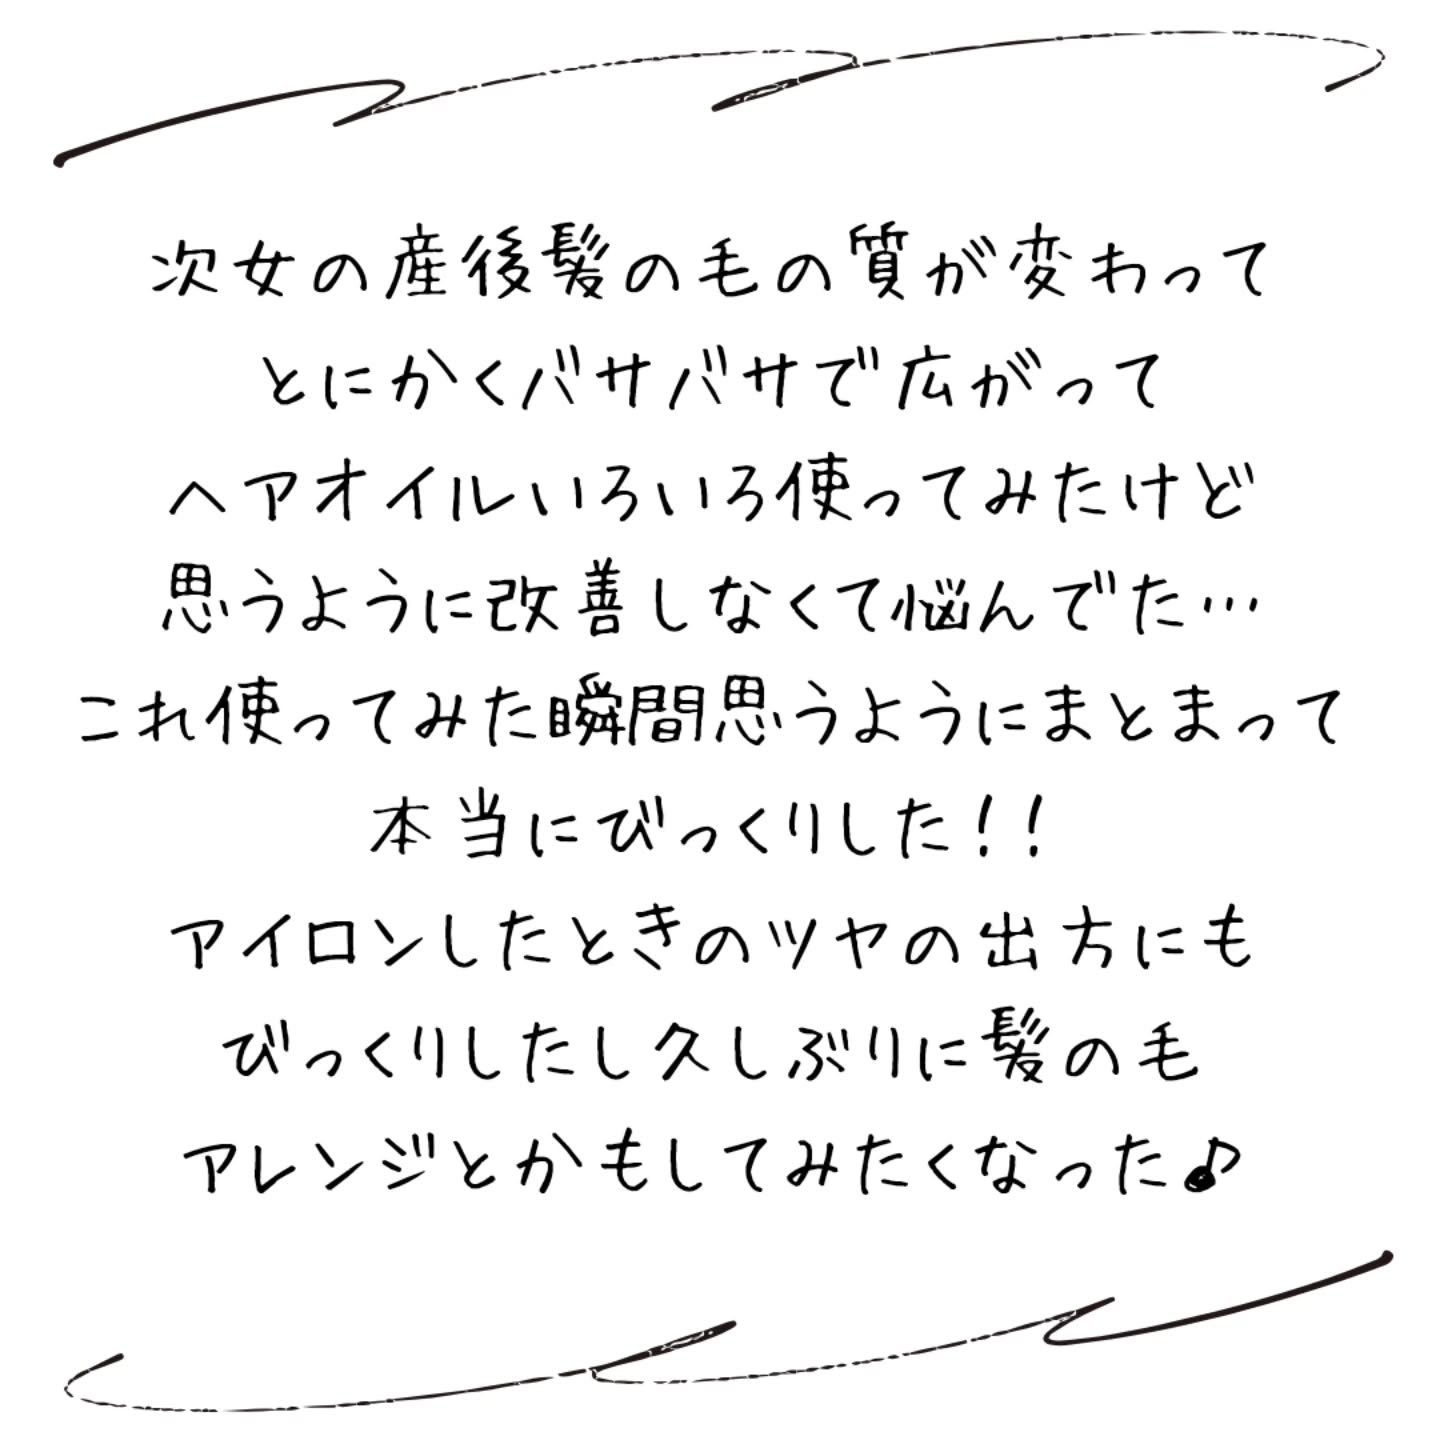 次女の産後髪の毛の質が変わって
とにかくバサバサで広がって
ヘアオイルいろいろ使ってみたけど
思うように改善しなくて悩んでた…
これ使ってみた瞬間思うようにまとまって
本当にびっくりした！！
アイロンしたときのツヤの出方にも
びっくりしたし久しぶりに髪の毛
アレンジとかもしてみたくなった♪